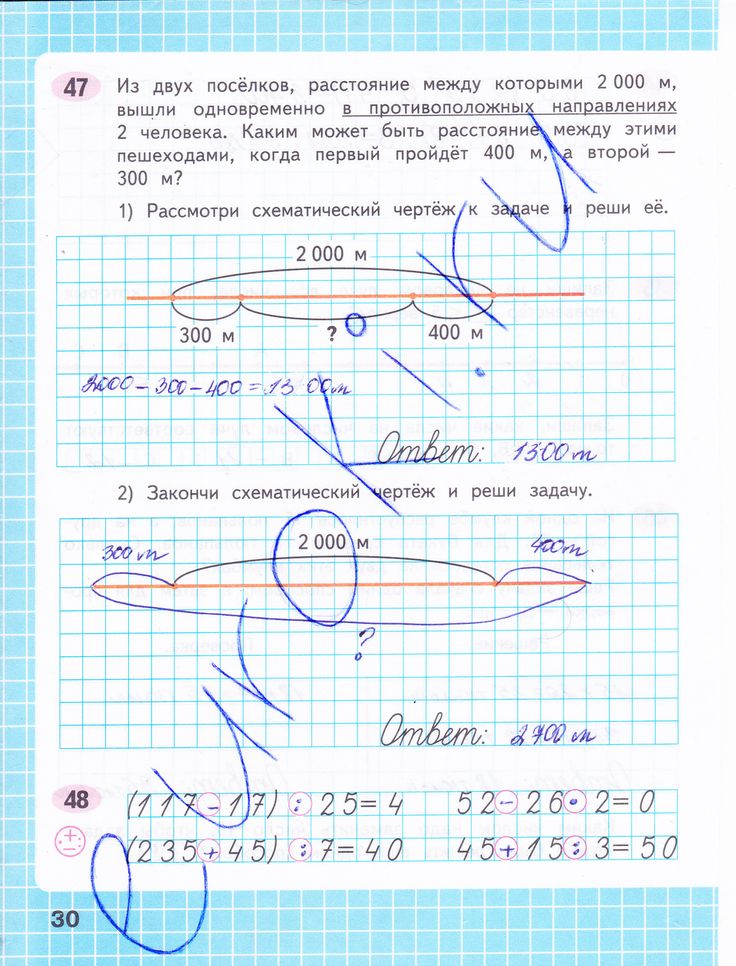 47 Из двух посёлков, расстояние между которыми 2 000 м,
вышли одновременно в противоположных направлениях
2 человека. Каким может быть расстояние между этими
пешеходами, когда первый пройдёт 400 м, а второй —
300 м?
1) Рассмотри схематический чертёж к задаче и реши её.
2 000 м
300 м ? 400 м
2000 – 300 – 400 = 1300 м
Ответ: 1300 м
2) Закончи схематический чертёж и реши задачу.
300 м 2 000 м 400 м
?
Ответ: 2700 м
48 (117 – 17) : 25 = 4 52 – 26 · 2 = 0
(235 + 45) : 7 = 40 45 + 15 : 3 = 50
30